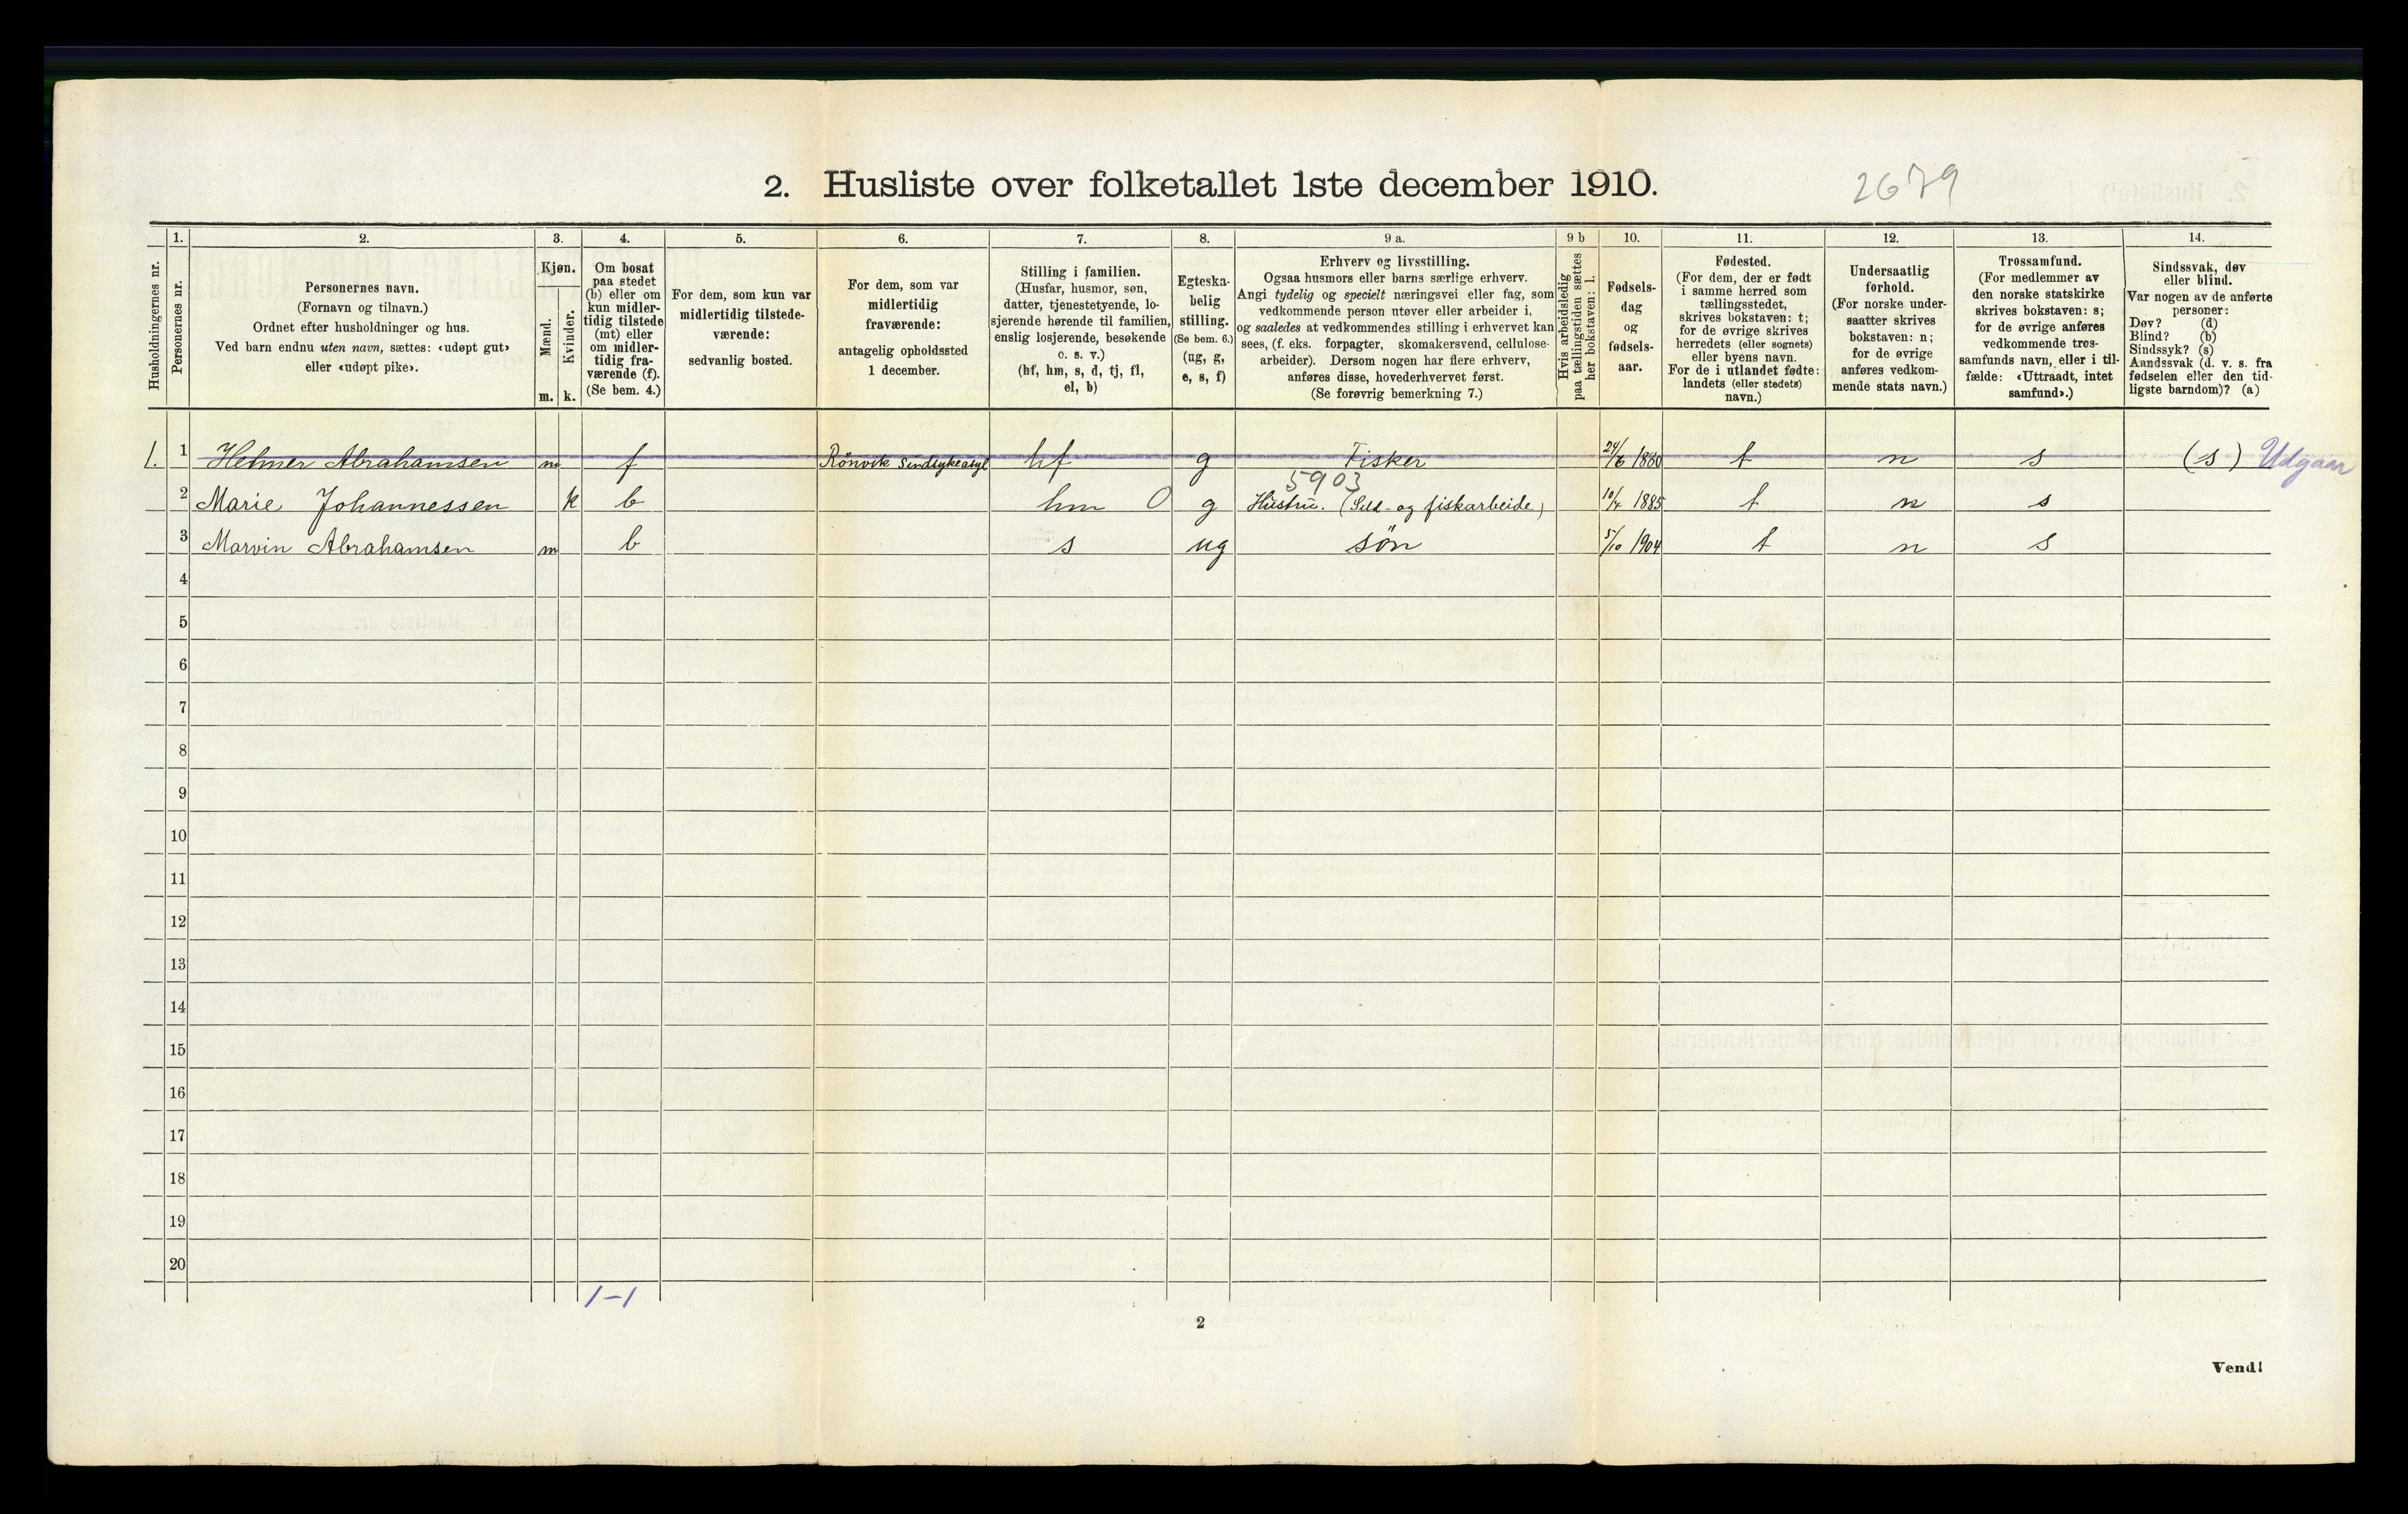 2. Husliste over folketallet 1ste december 1910.
2679
Husholdningernes nr.
1.
Personernes nr.
2.
Personernes navn.
(Fornavn og tilnavn.)
Ordnet efter husholdninger og hus.
Ved barn endnu uten navn, sættes: «udøpt gut»
eller «udøpt pike».
3.
Kjøn.
Mænd.
Kvinder.
m. k.
4.
Om bosat
paa stedet
(b) eller om
kun midler-
tidig tilstede
(mt) eller
om midler-
tidig fra-
værende (f).
(Se bem. 4.)
5.
For dem, som kun var
midlertidig tilstede-
værende:
sedvanlig bosted.
6.
For dem, som var
midlertidig
fraværende:
antagelig opholdssted
1 december.
7.
Stilling i familien.
(Husfar, husmor, søn,
datter, tjenestetyende, lo-
sjerende hørende til familien,
enslig losjerende, besøkende
o. s. v.)
(hf, hm, s, d, tj, fl,
el, b)
8.
Egteska-
belig
stilling.
(Se bem. 6.)
(ug, g,
e, s, f)
9 a.
Erhverv og livsstilling.
Ogsaa husmors eller barns særlige erhverv.
Angi tydelig og specielt næringsvei eller fag, som
vedkommende person utøver eller arbeider i,
og saaledes at vedkommendes stilling i erhvervet kan
sees, (f. eks. forpagter, skomakersvend, cellulose-
arbeider). Dersom nogen har flere erhverv,
anføres disse, hovederhvervet først.
(Se forøvrig bemerkning 7.)
9 b
Hvis arbeidsledig
paa tællingstiden sættes
her bokstaven: l.
10.
Fødsels-
dag
og
fødsels-
aar.
11.
Fødested.
(For dem, der er født
i samme herred som
tællingsstedet,
skrives bokstaven: t;
for de øvrige skrives
herredets (eller sognets)
eller byens navn.
For de i utlandet fødte:
landets (eller stedets)
navn.)
12.
Undersaatlig
forhold.
(For norske under-
saatter skrives
bokstaven: n;
for de øvrige
anføres vedkom-
mende stats navn.)
13.
Trossamfund.
(For medlemmer av
den norske statskirke
skrives bokstaven: s;
for de øvrige anføres
vedkommende tros-
samfunds navn, eller i til-
fælde: «Uttraadt, intet
samfund».)
14.
Sindssvak, døv
eller blind.
Var nogen av de anførte
personer:
Døv? (d)
Blind? (b)
Sindssyk? (s)
Aandssvak (d. v. s. fra
fødselen eller den tid-
ligste barndom)? (a)
1. 1 Helmer Abrahamsen m f Rönvik Sindsykeasyl hf g Fisker 24/6 1880 t n s (s) Udgaar
5903
2 Marie Johannessen k b hm 0 g Hustru. (Sild- og fiskarbeide) 10/4 1885 t n s
3 Marvin Abrahamsen m b s ug sön 5/10 1904 t n s
4
5
6
7
8
9
10
11
12
13
14
15
16
17
18
19
20
1-1
2
Vend!